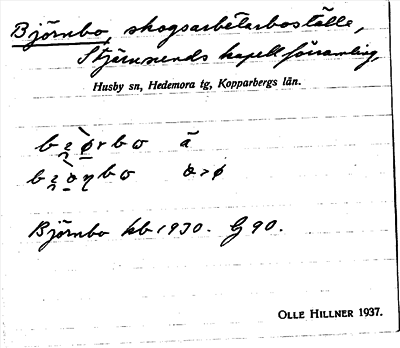 Björnbo, skogsarbetarboställe,
Stjärnsunds kapellförsamling,
Husby sn, Hedemora tg, Kopparbergs län.
Björnbo kb 1930. G 90.
OLLE HILLNER 1937.